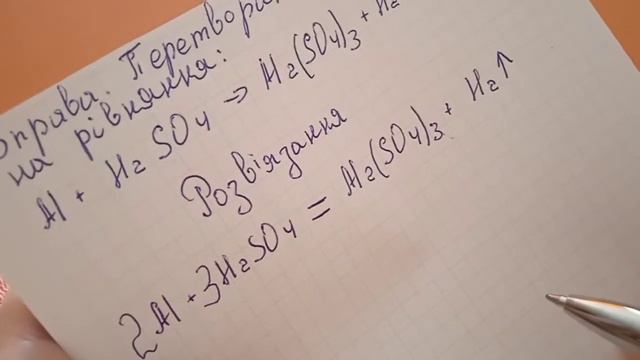 Вправа. Перетворі
на рівняння:
Al + H₂SO₄ → Al₂(SO₄)₃ + H₂
Розв'язання
2Al + 3H₂SO₄ = Al₂(SO₄)₃ + H₂↑